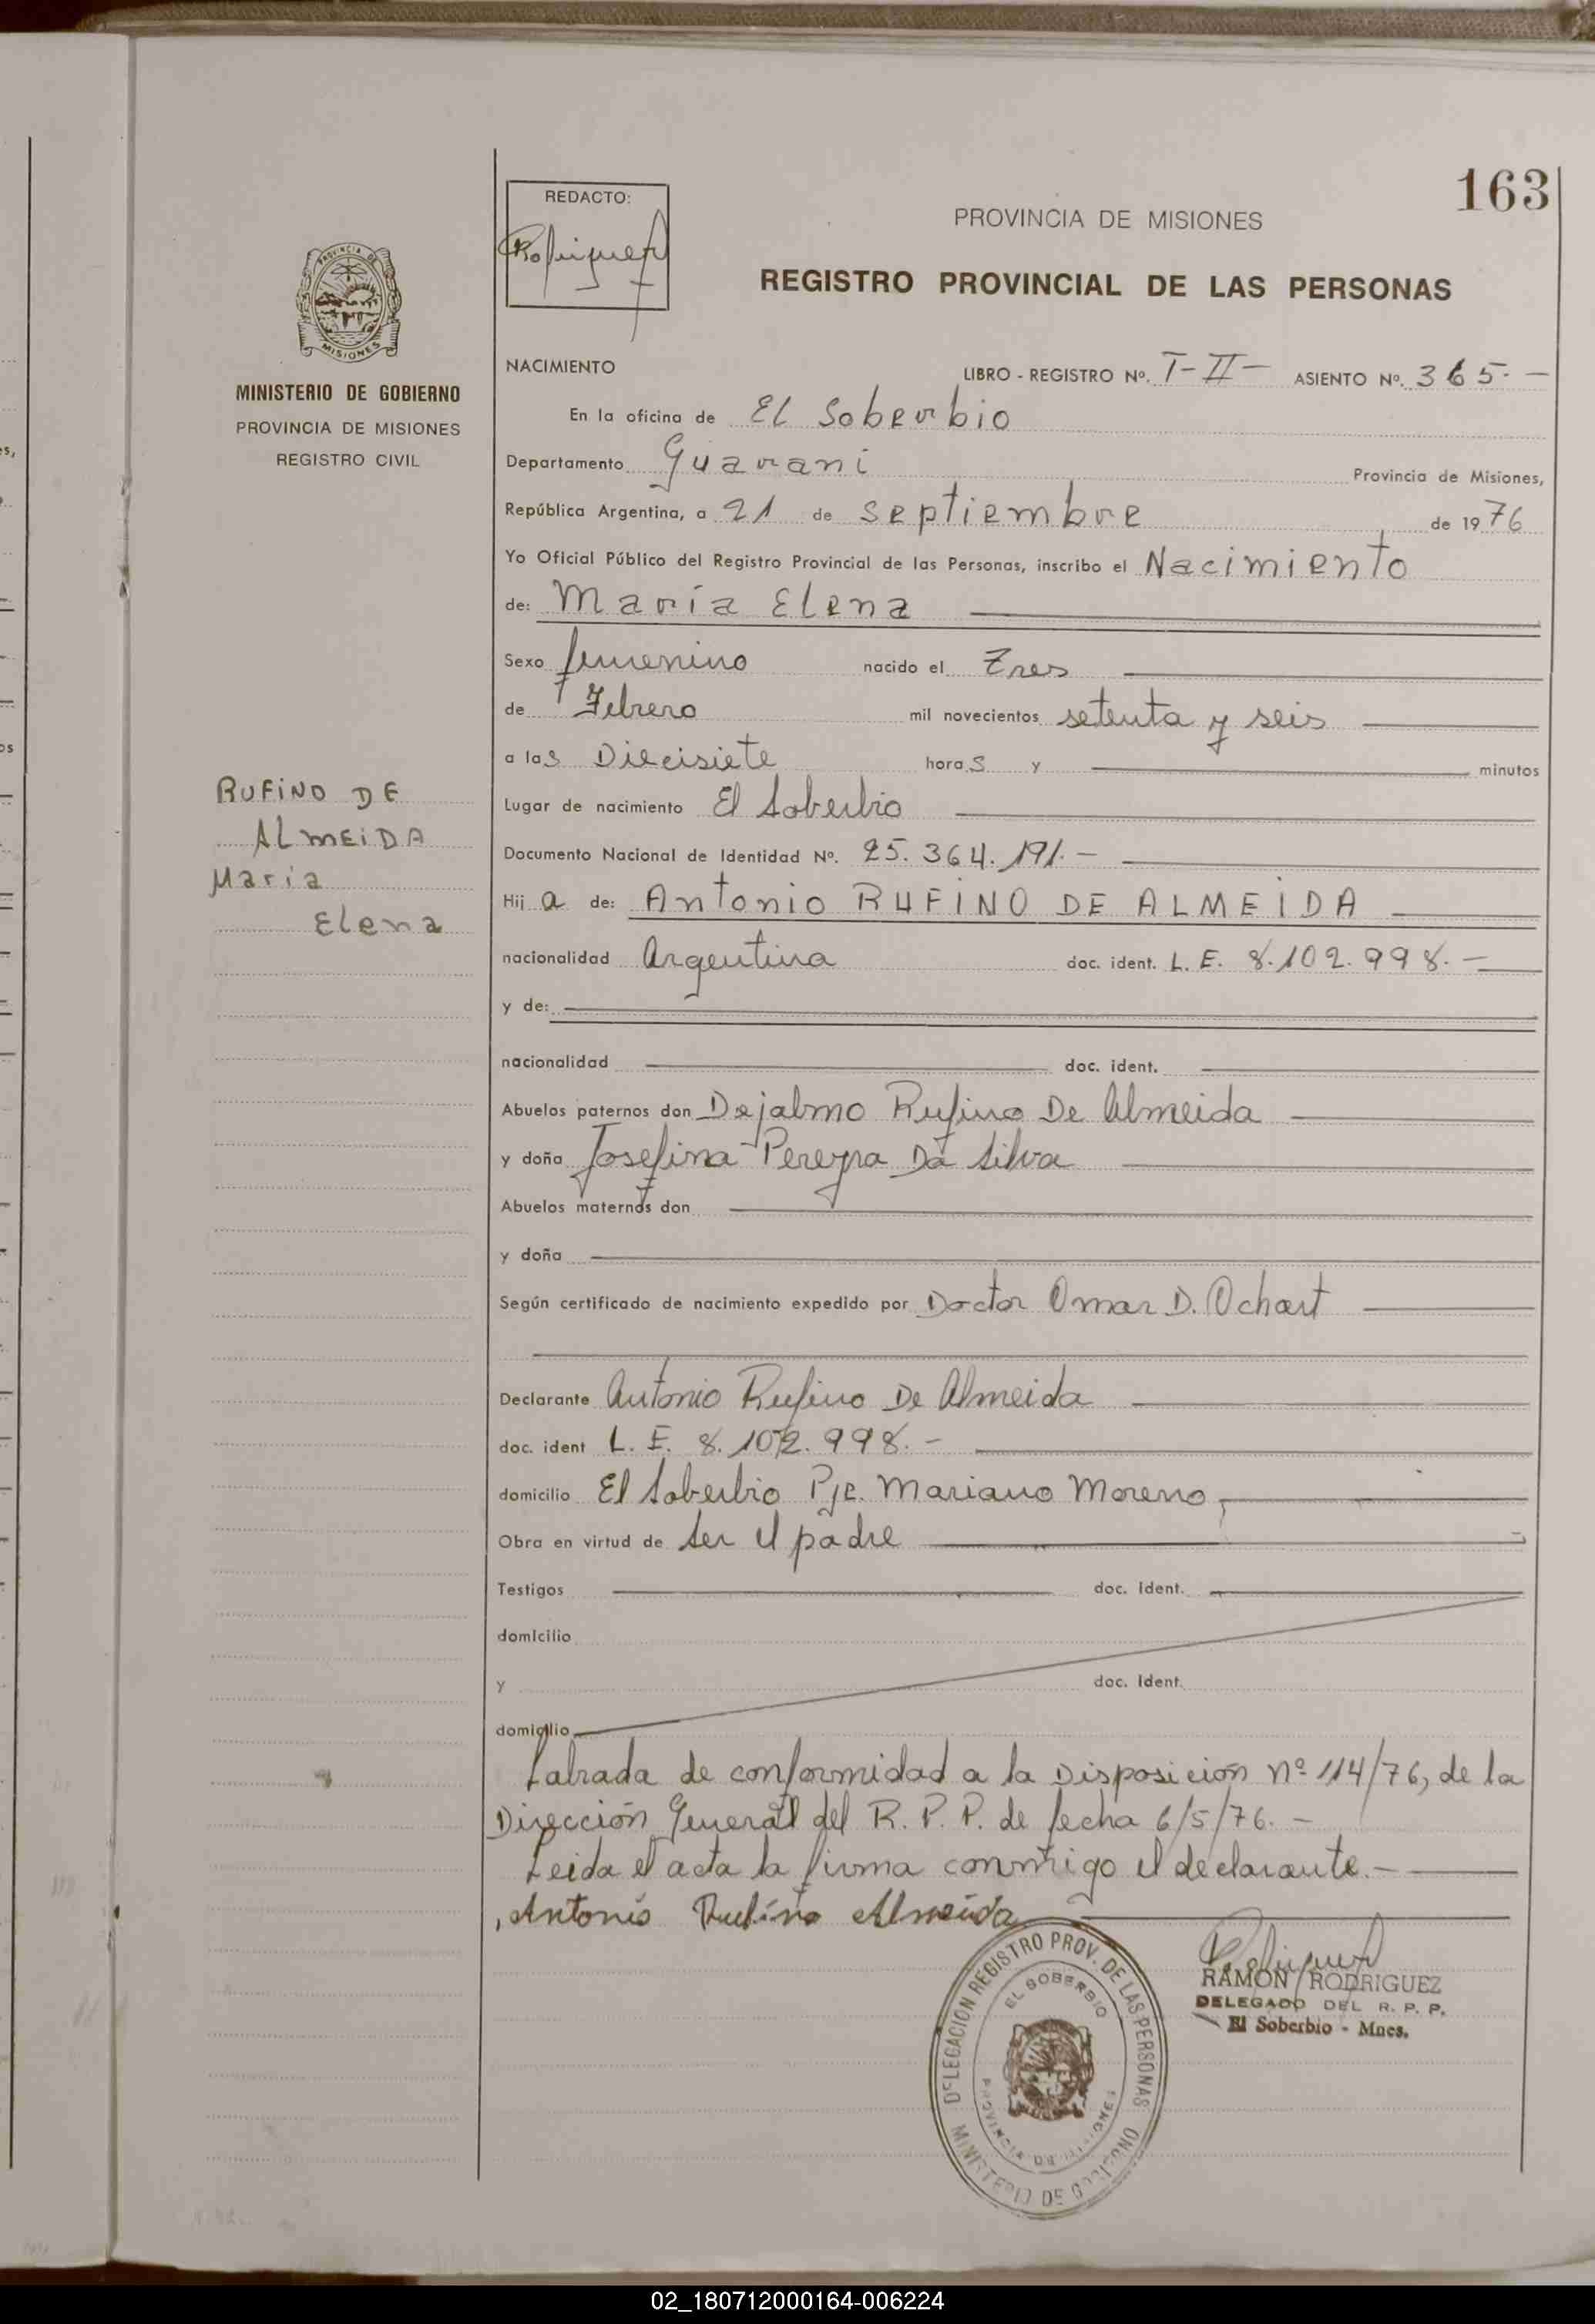 163
REDACTO:
Rodriguez
PROVINCIA DE MISIONES
REGISTRO PROVINCIAL DE LAS PERSONAS
PROVINCIA DE
MISIONES
MINISTERIO DE GOBIERNO
PROVINCIA DE MISIONES
REGISTRO CIVIL
RUFINO DE
ALMEIDA
Maria
Elena
NACIMIENTO LIBRO - REGISTRO Nº. T-II- ASIENTO Nº. 365.-
En la oficina de El Soberbio
Departamento Guarani Provincia de Misiones,
República Argentina, a 21 de septiembre de 1976
Yo Oficial Público del Registro Provincial de las Personas, inscribo el Nacimiento
de: María Elena
Sexo femenino nacido el Tres
de Febrero mil novecientos setenta y seis
a las Diecisiete horas y minutos
Lugar de nacimiento El Soberbio
Documento Nacional de Identidad Nº. 25.364.191.-
Hija de: Antonio RUFINO DE ALMEIDA
nacionalidad Argentina doc. ident. L.E. 8.102.998.-
y de:
nacionalidad doc. ident.
Abuelos paternos don Dejalmo Rufino De Almeida
y doña Josefina Pereyra Da Silva
Abuelos maternos don
y doña
Según certificado de nacimiento expedido por Doctor Omar D. Ochart
Declarante Antonio Rufino De Almeida
doc. ident L.E. 8.102.998.-
domicilio El Soberbio Pje. Mariano Moreno,
Obra en virtud de ser el padre
Testigos doc. ident.
domicilio
y doc. ident.
domicilio
Labrada de conformidad a la Disposicion nº 114/76, de la
Dirección General del R.P.P. de fecha 6/5/76.-
Leida el acta la firma conmigo el declarante.-
Antonio Rufino Almeida
DELEGACION REGISTRO PROV. DE LAS PERSONAS
MINISTERIO DE GOBIERNO
EL SOBERBIO
PROVINCIA DE MISIONES
Rodriguez
RAMON RODRIGUEZ
DELEGADO DEL R. P. P.
El Soberbio - Mnes.
02_180712000164-006224